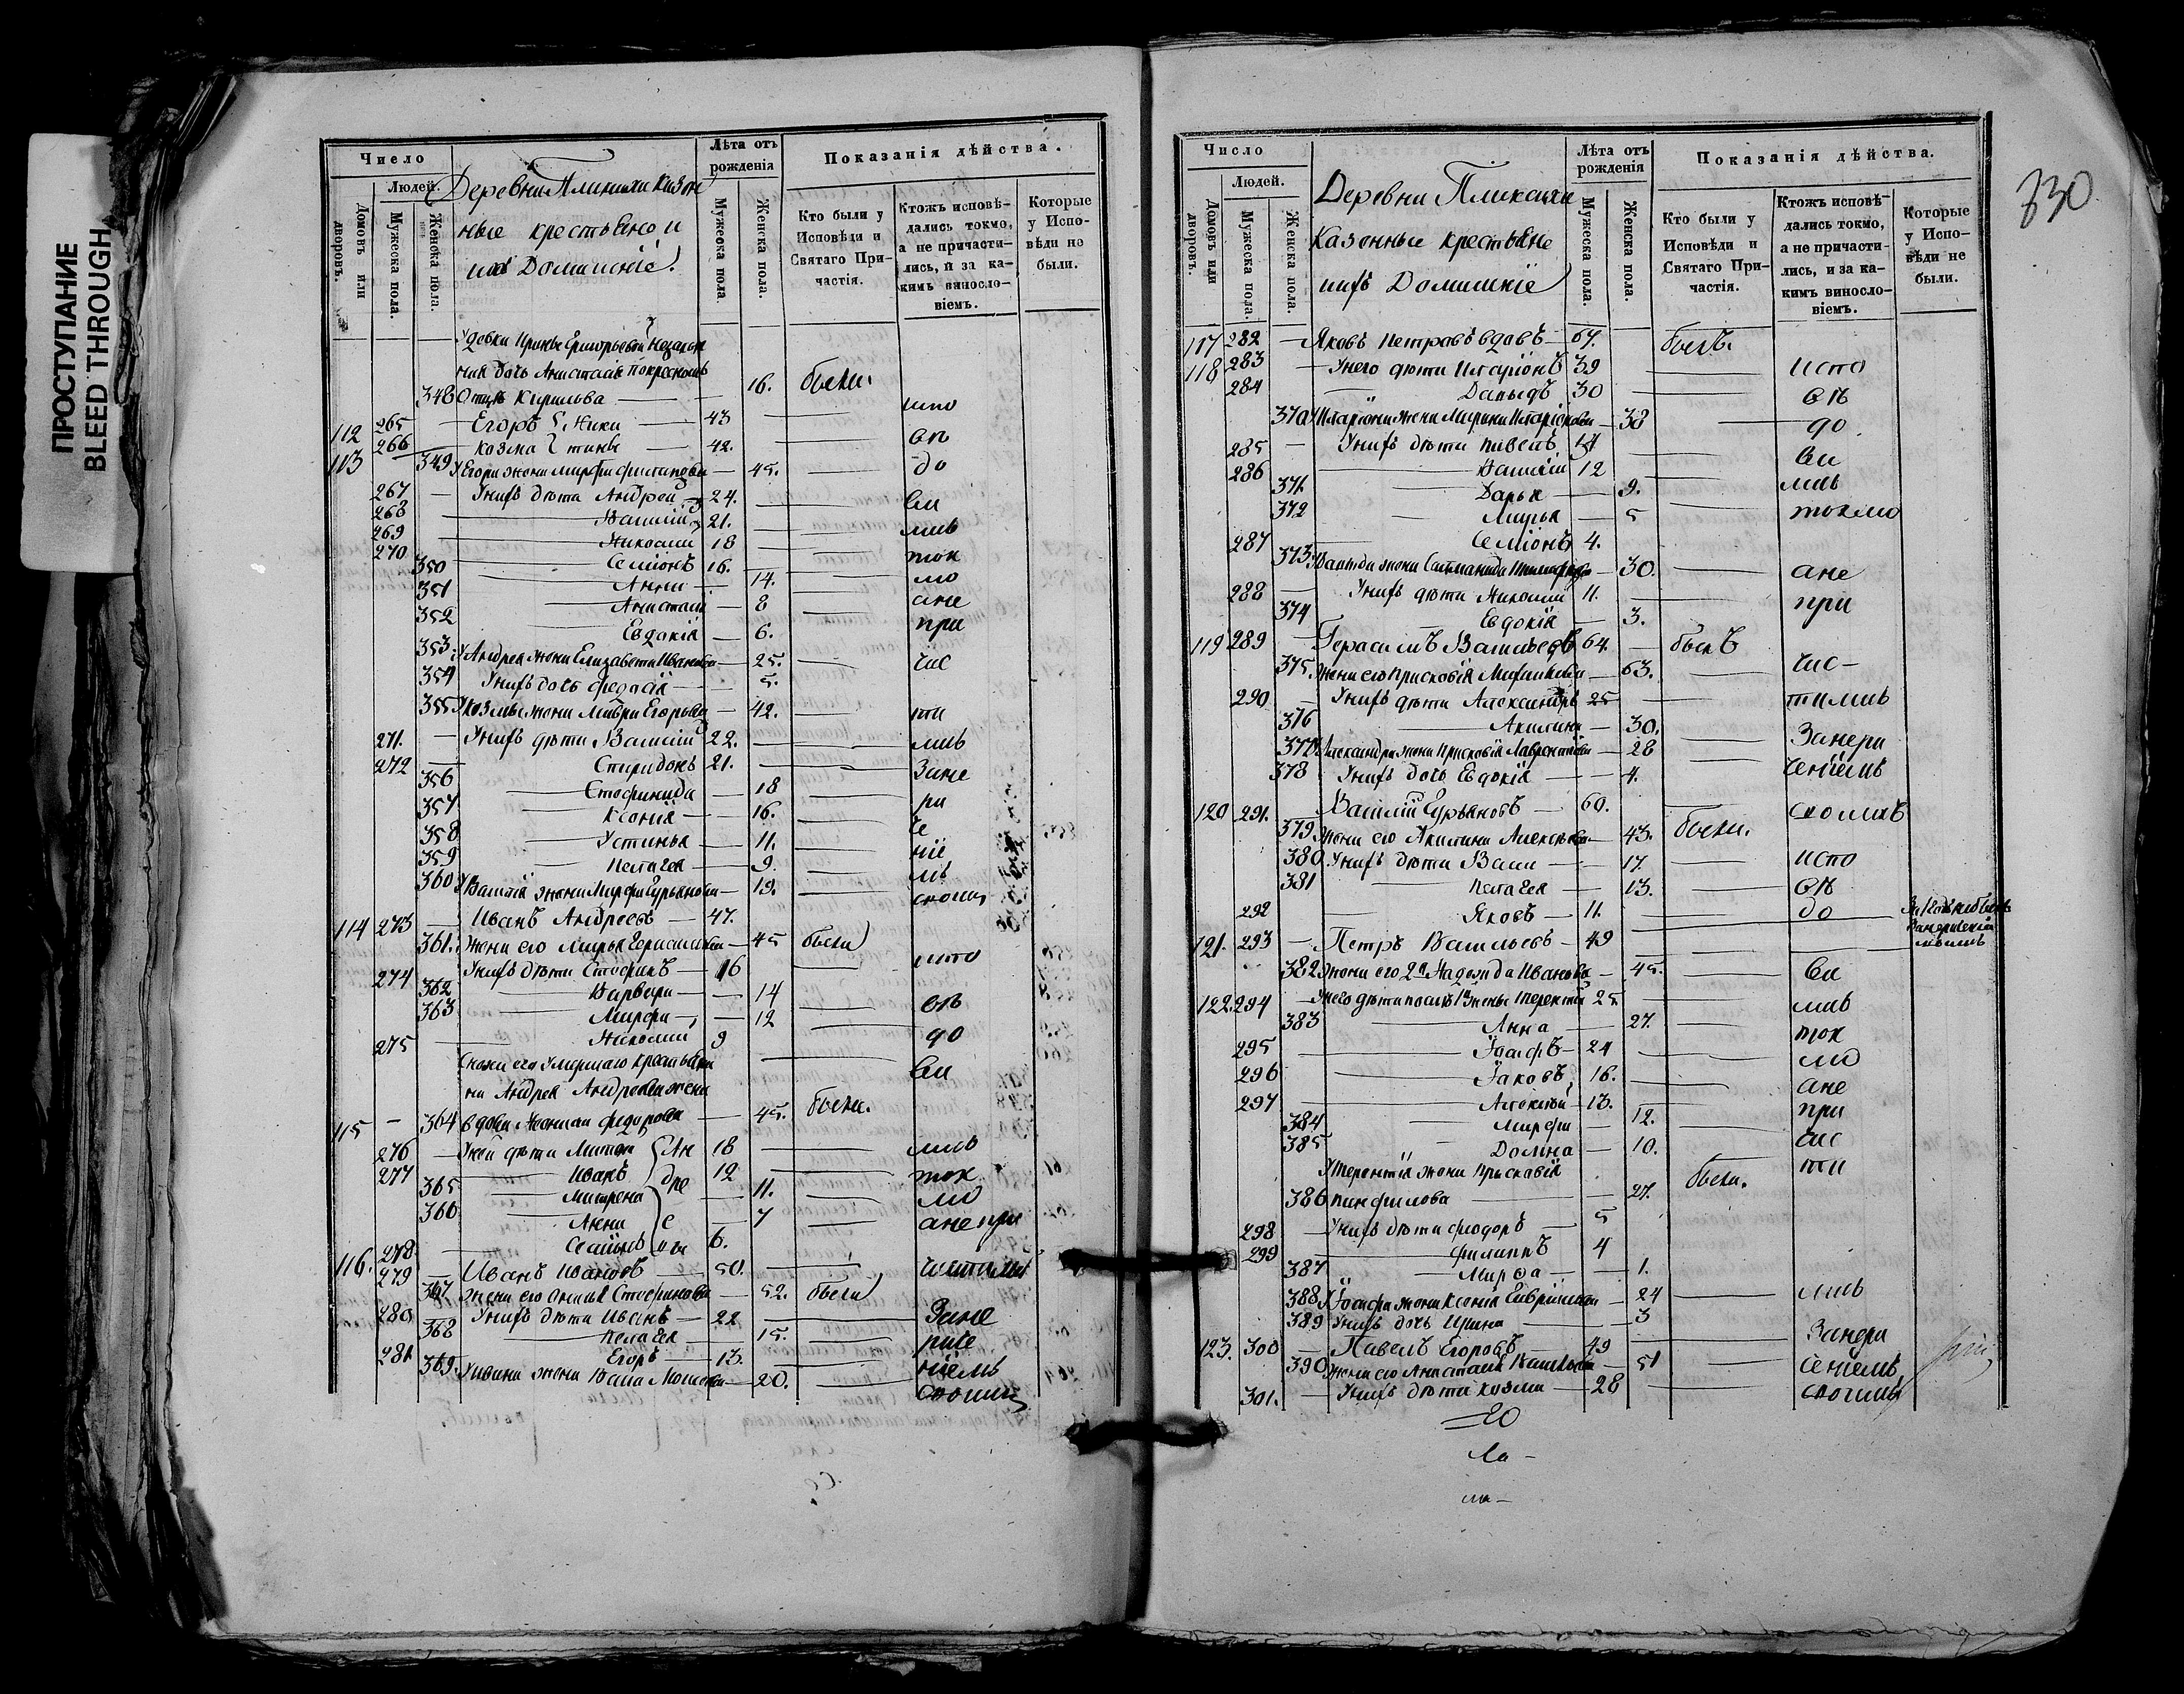 ПРОСТУПАНИЕ
BLEED THROUGH
Число
Людей.
Домовъ или дворовъ.
Мужеска пола.
Женска пола.
Деревни казен
ные крестьяне и
ихъ Домашніе.
Лѣта отъ рожденія
Мужеска пола.
Женска пола.
Показанія дѣйства.
Кто были у Исповѣди и Святаго Причастія.
Ктожъ исповѣдались токмо, а не причастились, и за какимъ винословіемъ.
Которые у Исповѣди не были.
Удовки Григорьевой
дочь Анастасія покресному
348 Отцѣ Кирилова — 16. были.
112 265 — Егоръ Ники — 43 испо
113 266 — Козма тины — 42. вѣ
349 У Егора жена Марфа Филипова — 45. до
267 — У нихъ дѣти Андрей 24. ва
268 Василій 21. лись
269 Николай 18 ток
270 Семіонъ 16. мо
350 Анна — 14. ане
351 Анастасія — 8 при
352 Евдокія — 6. час
353 У Андрея жена Елизавета Иванова — 25.
354 У нихъ дочь Федосія — 5.
355 У Козмы жена Мавра Егорьева — 42. ти
271. — У нихъ дѣти Василій 22. лись
272 Спиридонъ 21. Зане
356 Стефанида — 18 ра
357 Ксенія — 16. че
358 Устинья — 11. ніе
359 Пелагея — 9. мъ
360 У Василія жена Марфа Гурьянова — 19. своимъ
114 273 — Иванъ Андреевъ — 47.
361. Жена его Марья Герасимова — 45 были испо
274 У нихъ дѣти Стефанъ — 16
362 Варвара — 14 вѣ
363 Марфа — 12
275 Николай 9 до
Сноха его умершаго крестьяни
на Андрея Андреева жена ва
115 — 364 вдова Федорова — 45. были.
276 — У ней дѣти 18 лись
277 Иванъ 12 ток
365 Матрена — 11. мо
366 Анна — 7 ане при
278 Семіонъ 6.
116. 279 — Иванъ Ивановъ — 50. частились
367 Жена его Стефанова — 52. были
280 У нихъ дѣти Иванъ — 22 Зане
368 Пелагея — 15. раче
281 Егоръ — 13. ніемъ
369. У Ивана жена Васа — 20. своимъ
330
Число
Людей.
Домовъ или дворовъ.
Мужеска пола.
Женска пола.
Деревни
Казенные крестьяне
ихъ Домашніе
Лѣта отъ рожденія
Мужеска пола.
Женска пола.
Показанія дѣйства.
Кто были у Исповѣди и Святаго Причастія.
Ктожъ исповѣдались токмо, а не причастились, и за какимъ винословіемъ.
Которые у Исповѣди не были.
117 282 — Яковъ Петровъ вдовъ — 67. былъ.
118 283 — У него дѣти Иларіонъ 39 испо
284 Давыдъ 30 вѣ
370 У Иларіона жена Марина Иларіонова — 38 до
285 — У нихъ дѣти Павелъ 14 ва
286 Василій 12
371. Дарья — 9. лись
372 Марья — 5 токмо
287 Семіонъ 4.
373 У Давыда жена — 30. ане
288 — У нихъ дѣти Николай 11. при
374 Евдокія — 3.
119 289 — Герасимъ Васильевъ 64. былъ
375. Жена его Прасковія — 63. час-
290 — У нихъ дѣти Александръ 25 тились
376 Акилина — 30.
377 У Александра жена Прасковія Лаврентьева — 28 Занера
378 У нихъ дочь Евдокія — 4. ченіемъ
120 291. Василій Гурьяновъ — 60. своимъ
379 Жена его Акилина Алексѣева — 43. были.
380 У нихъ дѣти Васа — 17. испо
381 Пелагея — 13. вѣ
292 Яковъ — 11. до
121. 293 — Петръ Васильевъ — 49
382 Жена его 2я Надежда Иванова — 45. ва
122. 294 — У него дѣти послѣ 1й жены Терентій 25. лись
383 Анна — 27. ток
295 Іосифъ — 24 мо
296 Іаковъ 16. ане
297 Алексѣй — 13. при
384 Марфа — 12. час
385 Домна — 10. ти
У Терентія жена Прасковія были.
386 Панфилова — 27.
298 — У нихъ дѣти Феодоръ 5
299 Филиппъ 4
387 Марѳа — 1.
388 У Іосифа жена Ксенія — 24 лись
389 У нихъ дочь Ирина — 3
123. 300 — Павелъ Егоровъ 49 Занера
390 Жена его Анастасія Васильева — 51 ченіемъ
301. — У нихъ дѣти Козма — 28 своимъ
20